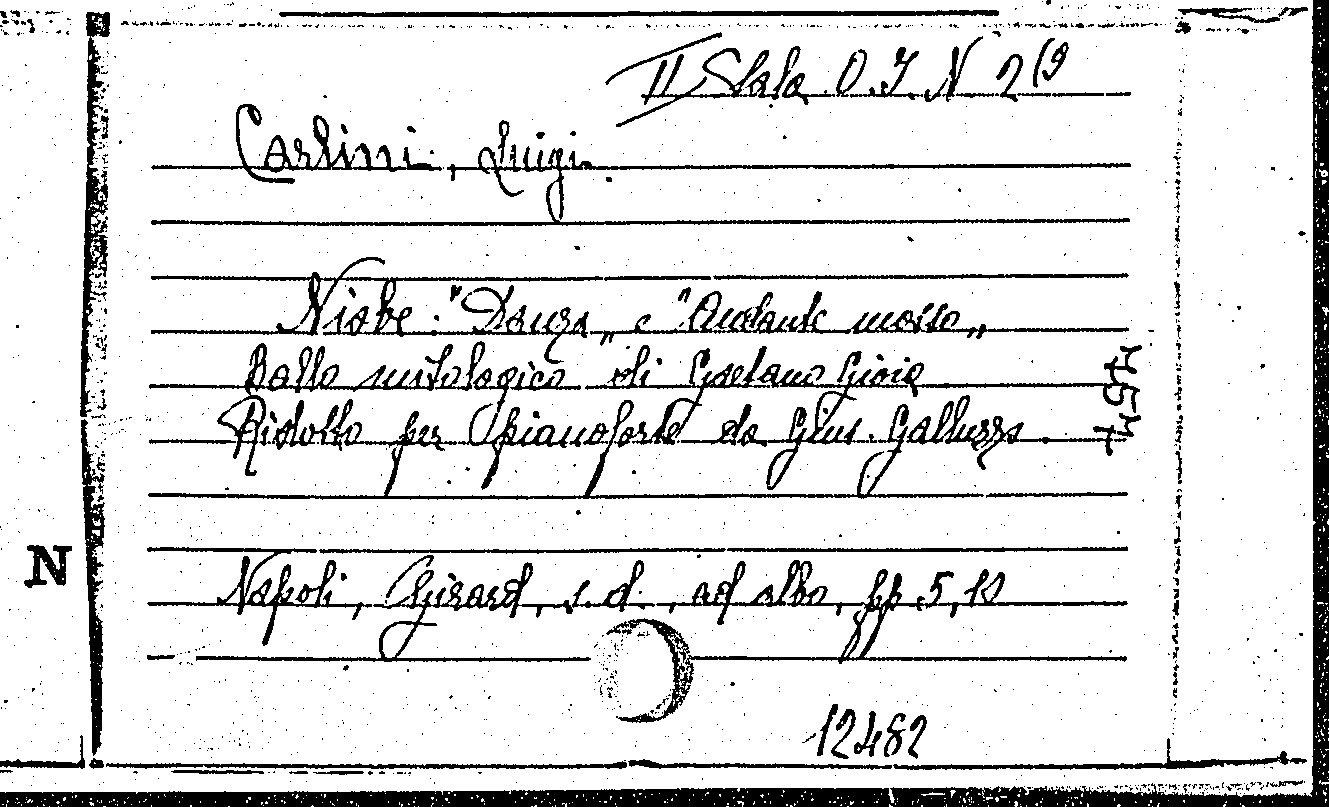 II Sala O.I. N 2(9
Carlini, Luigi.
Niobe: "Danza„ e "Andante mosso„
Ballo mitologico di Gaetano Gioia
Ridotto per pianoforte da Gius. Galluzzo.
N
Napoli, Girard, s.d., ad albo, pp. 5, 10
12482